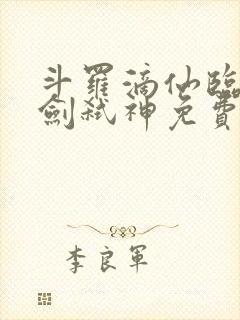 斗羅滴仙臨
劍弒神免費
李良軍